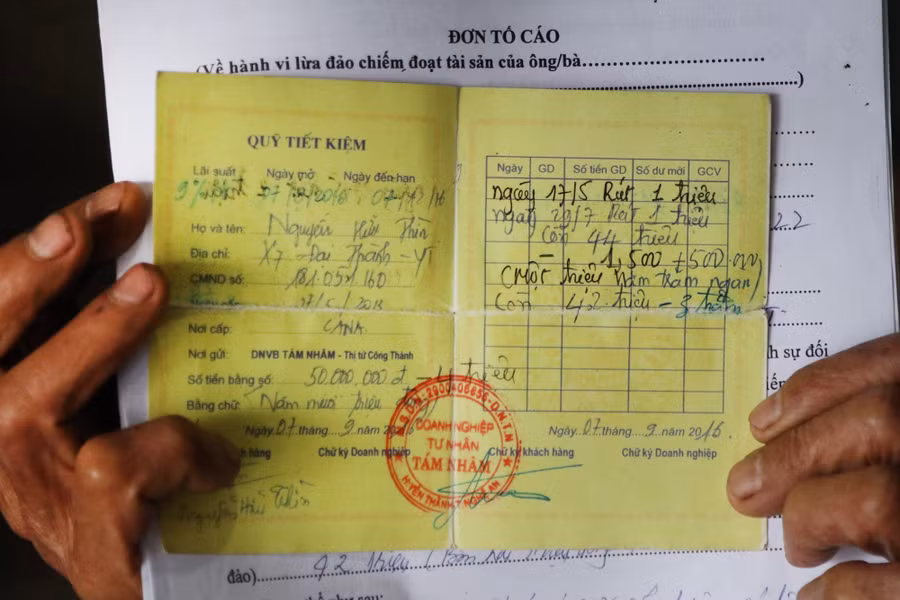 ĐƠN TỐ CÁO
(Về hành vi lừa đảo chiếm đoạt tài sản của ông/bà..............................
..............................)
QUỸ TIẾT KIỆM
Lãi suất Ngày mở - Ngày đến hạn
Họ và tên: Nguyễn Hữu Thìn
Địa chỉ: X7 - Đại Thành - YT
CMND số: 181.051.160
Nơi cấp: CANA
Nơi gửi: DNVB TÁM NHÂM - Thị tứ Công Thành
Số tiền bằng số: 50.000.000 đ
Bằng chữ: Năm mươi triệu
Ngày 07 tháng 9 năm
hàng Chữ ký Doanh nghiệp
Nguyễn Hữu Thìn
Ngày GD Số tiền GD Số dư mới GCV
ngày 17/5 Rút 1 triệu
ngày 29/7 Rút 1 triệu
Còn 44 triệu
- 1,500 + 500.000
(một triệu năm trăm ngàn)
Còn 42 triệu -
Ngày 07 tháng 9 năm 2016.
Chữ ký khách hàng Chữ ký Doanh nghiệp
DOANH NGHIỆP
TƯ NHÂN
TÁM NHÂM
H.YÊN THÀNH-T.NGHỆ AN
h sự đối
đảo) 42 triệu